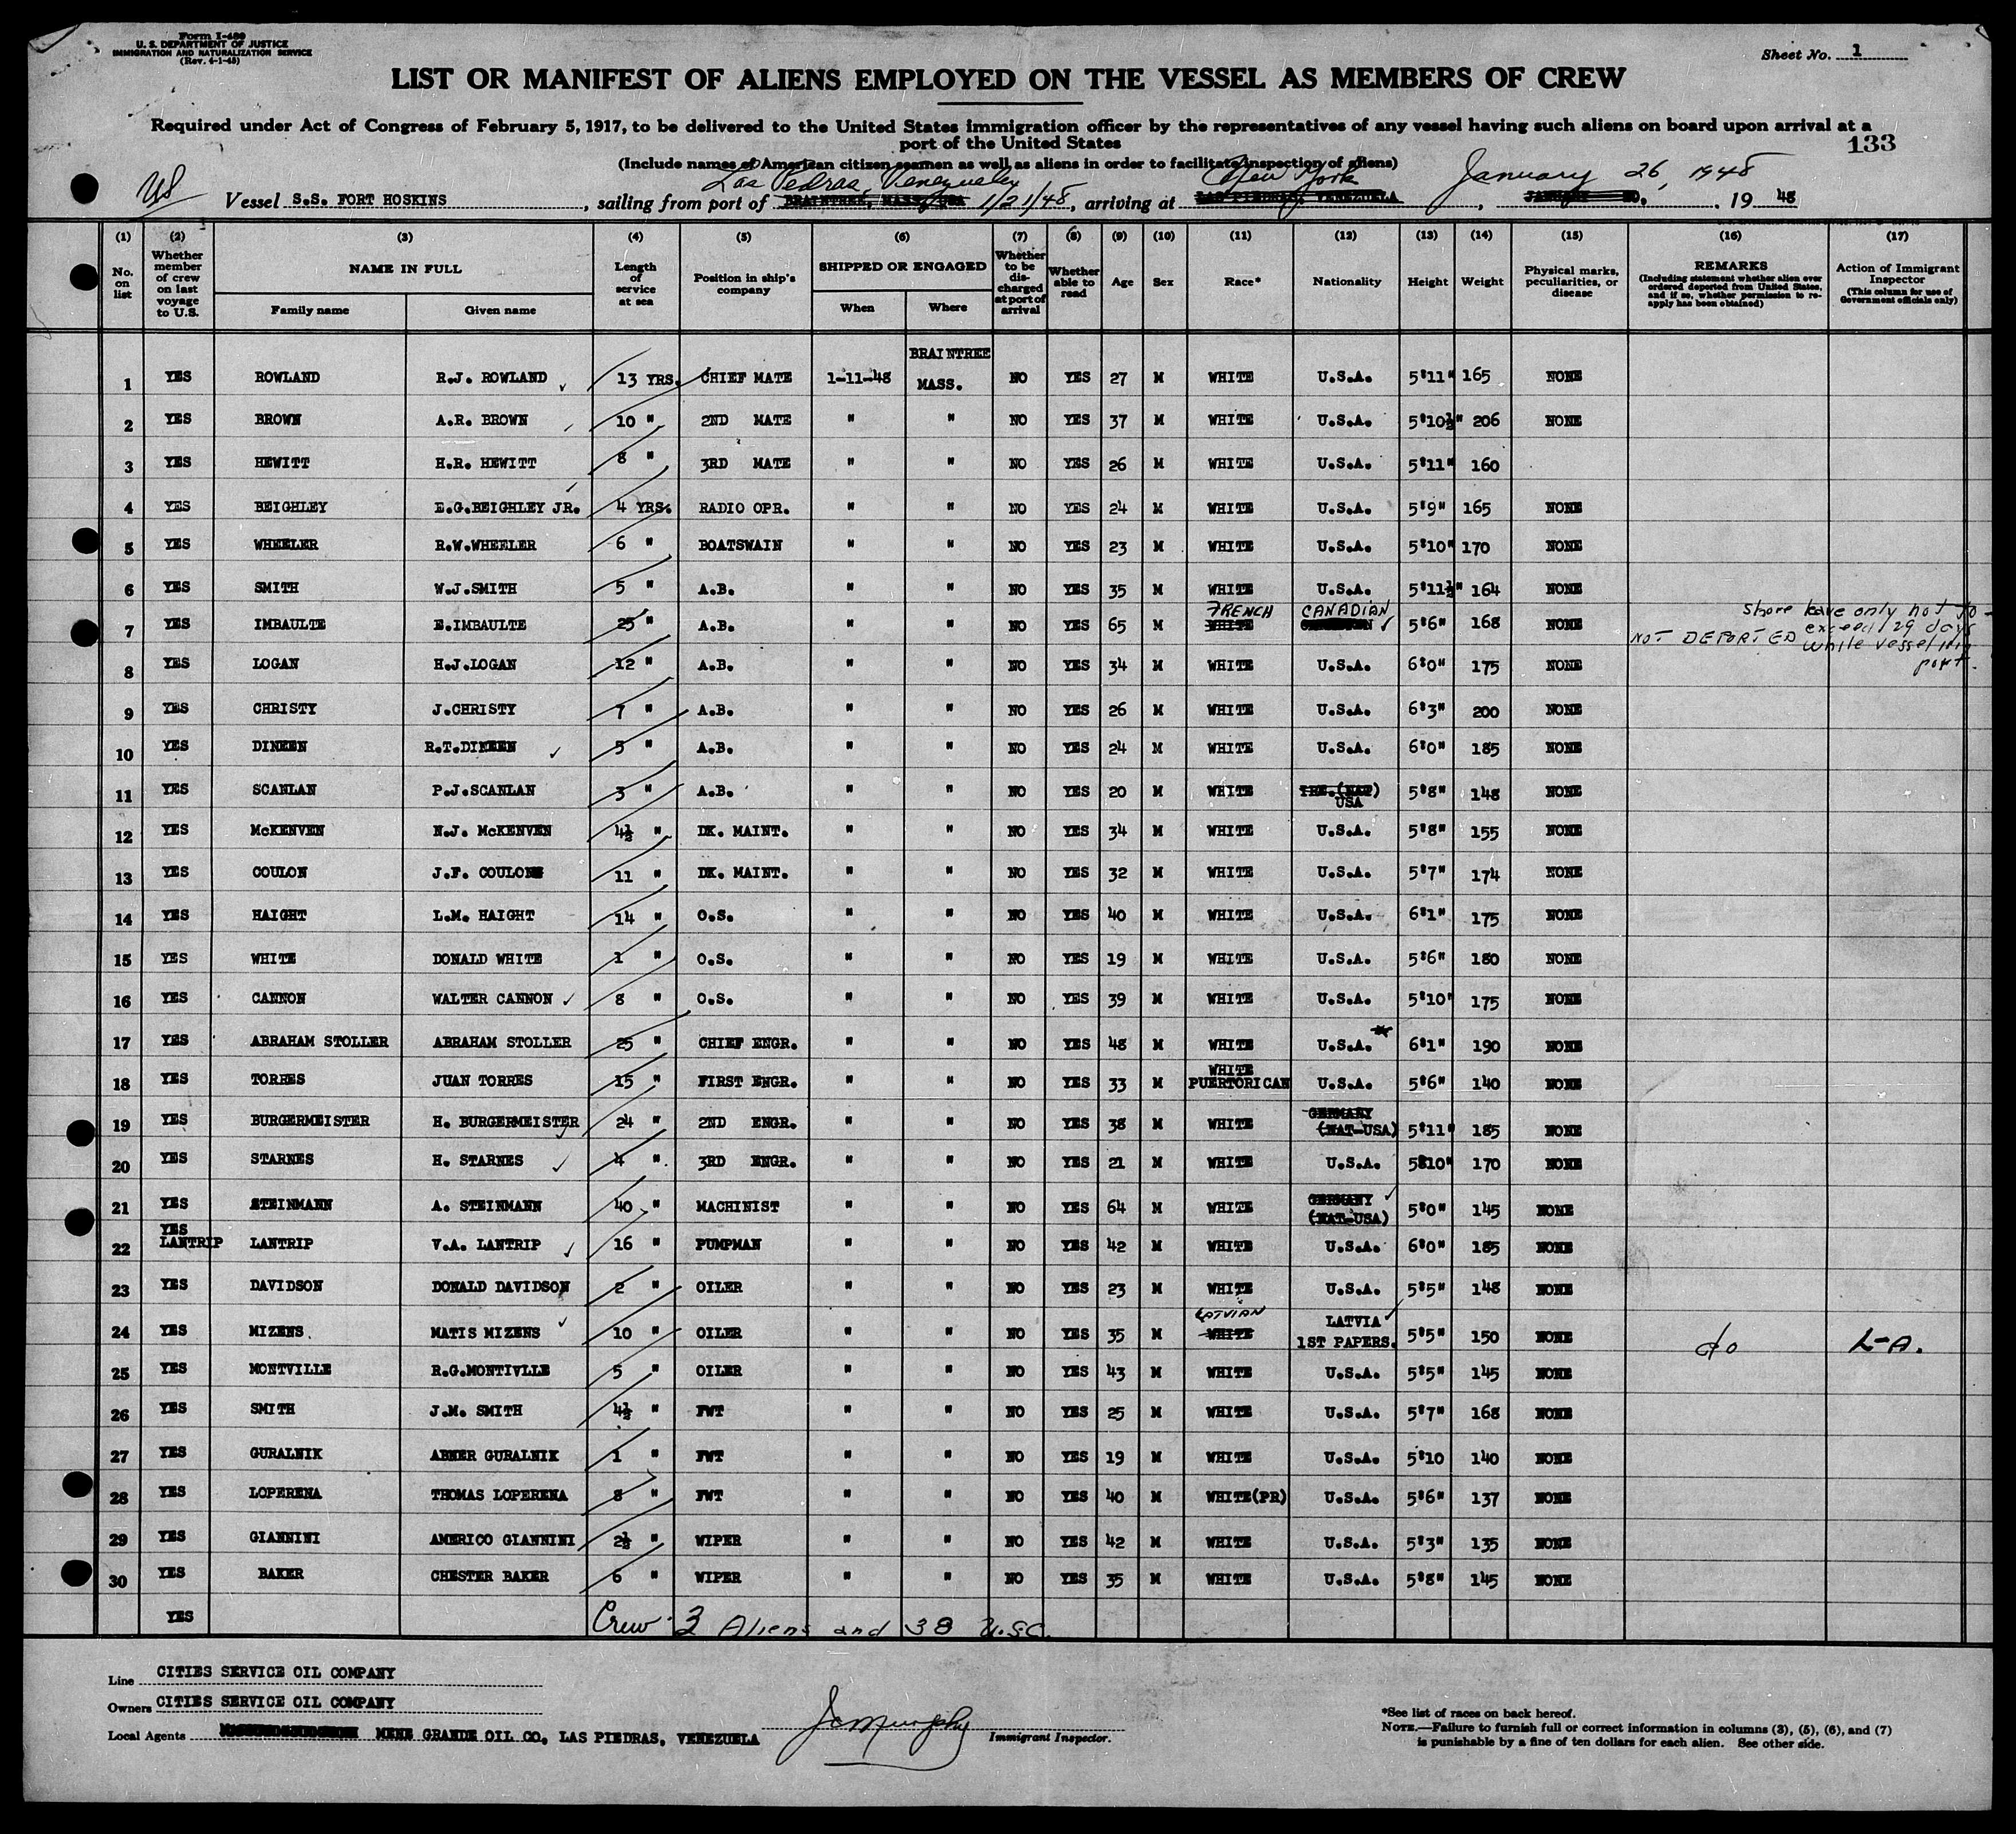 Form I-489
U. S. DEPARTMENT OF JUSTICE
IMMIGRATION AND NATURALIZATION SERVICE
(Rev. 4-1-45)
Sheet No. 1
LIST OR MANIFEST OF ALIENS EMPLOYED ON THE VESSEL AS MEMBERS OF CREW
Required under Act of Congress of February 5, 1917, to be delivered to the United States immigration officer by the representatives of any vessel having such aliens on board upon arrival at a
port of the United States
133
(Include names of American citizen seamen as well as aliens in order to facilitate inspection of aliens)
Las Pedras, Venezuela New York January 26, 1948
US Vessel S.S. FORT HOSKINS, sailing from port of BRAINTREE, MASS, USA 1/21/48, arriving at LAS PIEDRAS, VENEZUELA, 19 48
(1) (2) (3) (4) (5) (6) (7) (8) (9) (10) (11) (12) (13) (14) (15) (16) (17)
No. on list Whether member of crew on last voyage to U.S. NAME IN FULL Family name Given name Length of service at sea Position in ship's company SHIPPED OR ENGAGED When Where Whether to be discharged at port of arrival Whether able to read Age Sex Race* Nationality Height Weight Physical marks, peculiarities, or disease REMARKS (Including statement whether alien ever ordered deported from United States, and if so, whether permission to reapply has been obtained) Action of Immigrant Inspector (This column for use of Government officials only)
1 YES ROWLAND R.J. ROWLAND 13 YRS. CHIEF MATE 1-11-48 BRAINTREE MASS. NO YES 27 M WHITE U.S.A. 5'11" 165 NONE
2 YES BROWN A.R. BROWN 10 " 2ND MATE " " NO YES 37 M WHITE U.S.A. 5'10½" 206 NONE
3 YES HEWITT H.R. HEWITT 8 " 3RD MATE " " NO YES 26 M WHITE U.S.A. 5'11" 160
4 YES BEIGHLEY E.G.BEIGHLEY JR. 4 YRS. RADIO OPR. " " NO YES 24 M WHITE U.S.A. 5'9" 165 NONE
5 YES WHEELER R.W.WHEELER 6 " BOATSWAIN " " NO YES 23 M WHITE U.S.A. 5'10" 170 NONE
6 YES SMITH W.J.SMITH 5 " A.B. " " NO YES 35 M WHITE U.S.A. 5'11½" 164 NONE
7 YES IMBAULTE E.IMBAULTE 25 " A.B. " " NO YES 65 M FRENCH WHITE CANADIAN 5'6" 168 NONE NOT DEPORTED shore leave only not to exceed 29 days while vessel in port.
8 YES LOGAN H.J.LOGAN 12 " A.B. " " NO YES 34 M WHITE U.S.A. 6'0" 175 NONE
9 YES CHRISTY J.CHRISTY 7 " A.B. " " NO YES 26 M WHITE U.S.A. 6'3" 200 NONE
10 YES DINEEN R.T.DINEEN 5 " A.B. " " NO YES 24 M WHITE U.S.A. 6'0" 185 NONE
11 YES SCANLAN P.J.SCANLAN 3 " A.B. " " NO YES 20 M WHITE IRE.(NAT) USA 5'8" 148 NONE
12 YES McKENVEN N.J. McKENVEN 4½ " DK. MAINT. " " NO YES 34 M WHITE U.S.A. 5'8" 155 NONE
13 YES COULON J.F. COULON 11 " DK. MAINT. " " NO YES 32 M WHITE U.S.A. 5'7" 174 NONE
14 YES HAIGHT L.M. HAIGHT 14 " O.S. " " NO YES 40 M WHITE U.S.A. 6'1" 175 NONE
15 YES WHITE DONALD WHITE 1 " O.S. " " NO YES 19 M WHITE U.S.A. 5'6" 180 NONE
16 YES CANNON WALTER CANNON 8 " O.S. " " NO YES 39 M WHITE U.S.A. 5'10" 175 NONE
17 YES ABRAHAM STOLLER ABRAHAM STOLLER 25 " CHIEF ENGR. " " NO YES 48 M WHITE U.S.A. 6'1" 190 NONE
18 YES TORRES JUAN TORRES 15 " FIRST ENGR. " " NO YES 33 M WHITE PUERTORICAN U.S.A. 5'6" 140 NONE
19 YES BURGERMEISTER H. BURGERMEISTER 24 " 2ND ENGR. " " NO YES 38 M WHITE GERMANY (NAT-USA) 5'11" 185 NONE
20 YES STARNES H. STARNES 4 " 3RD ENGR. " " NO YES 21 M WHITE U.S.A. 5'10" 170 NONE
21 YES STEINMANN A. STEINMANN 40 " MACHINIST " " NO YES 64 M WHITE GERMANY (NAT-USA) 5'0" 145 NONE
22 YES LANTRIP LANTRIP V.A. LANTRIP 16 " PUMPMAN " " NO YES 42 M WHITE U.S.A. 6'0" 185 NONE
23 YES DAVIDSON DONALD DAVIDSON 2 " OILER " " NO YES 23 M WHITE U.S.A. 5'5" 148 NONE
24 YES MIZENS. MATIS MIZENS 10 " OILER " " NO YES 35 M LATVIAN WHITE LATVIA 1ST PAPERS. 5'5" 150 NONE do L-A.
25 YES MONTVILLE R.G.MONTIVLLE 5 " OILER " " NO YES 43 M WHITE U.S.A. 5'5" 145 NONE
26 YES SMITH J.M. SMITH 4½ " FWT " " NO YES 25 M WHITE U.S.A. 5'7" 168 NONE
27 YES GURALNIK ABNER GURALNIK 1 " FWT " " NO YES 19 M WHITE U.S.A. 5'10 140 NONE
28 YES LOPERENA THOMAS LOPERENA 8 " FWT " " NO YES 40 M WHITE(PR) U.S.A. 5'6" 137 NONE
29 YES GIANNINI AMERICO GIANNINI 2½ " WIPER " " NO YES 42 M WHITE U.S.A. 5'3" 135 NONE
30 YES BAKER CHESTER BAKER 6 " WIPER " " NO YES 35 M WHITE U.S.A. 5'8" 145 NONE
YES Crew - 3 Aliens and 38 U.S.C.
Line CITIES SERVICE OIL COMPANY
Owners CITIES SERVICE OIL COMPANY
Local Agents MENE GRANDE OIL CO, LAS PIEDRAS, VENEZUELA
JCMurphy Immigrant Inspector.
*See list of races on back hereof.
NOTE.—Failure to furnish full or correct information in columns (3), (5), (6), and (7)
is punishable by a fine of ten dollars for each alien. See other side.